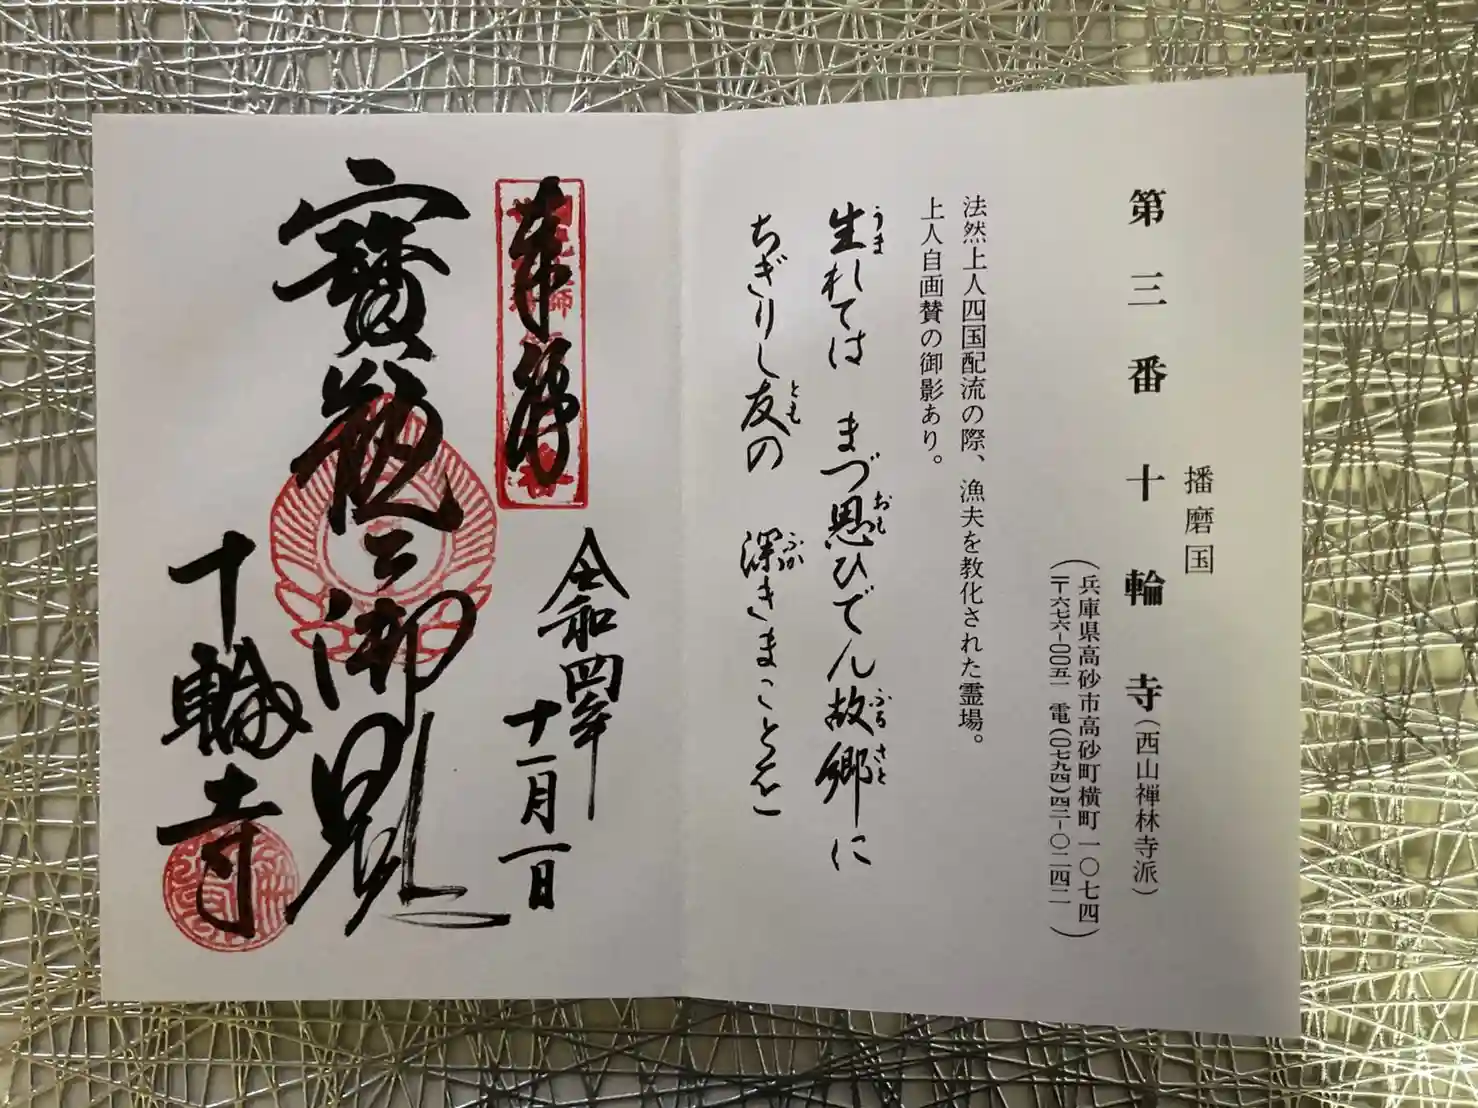 播磨国
第三番 十輪寺(西山禅林寺派)
(兵庫県高砂市高砂町横町一〇七四)
(〒六七六-〇〇五一 電(〇七九四)四二-〇二四二)
法然上人四国配流の際、漁夫を教化された霊場。
上人自画賛の御影あり。
生れては まづ思ひでん故郷に
うま おも ふるさと
ちぎりし友の 深きまことを
とも ふか
奉拝
令和四年
十一月一日
寶瓶之御影
十輪寺